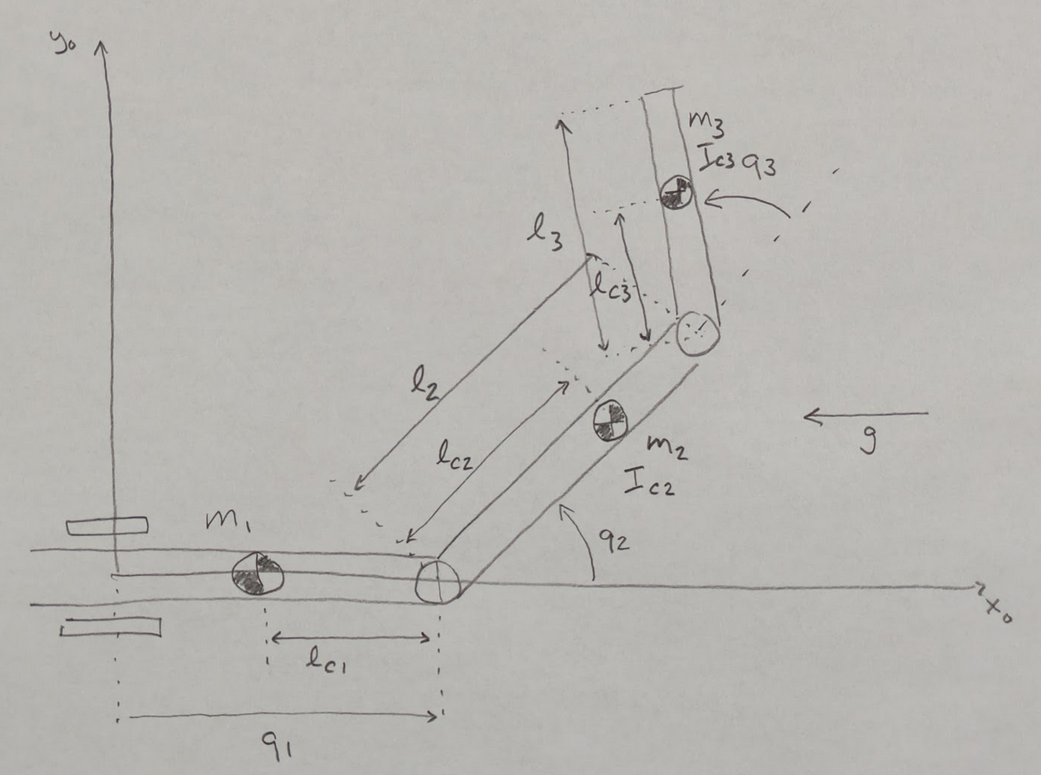 y₀
m₃
I_c3 q₃
l₃
l_c3
l₂
l_c2
g
m₂
I_c2
m₁
q₂
x₀
l_c1
q₁